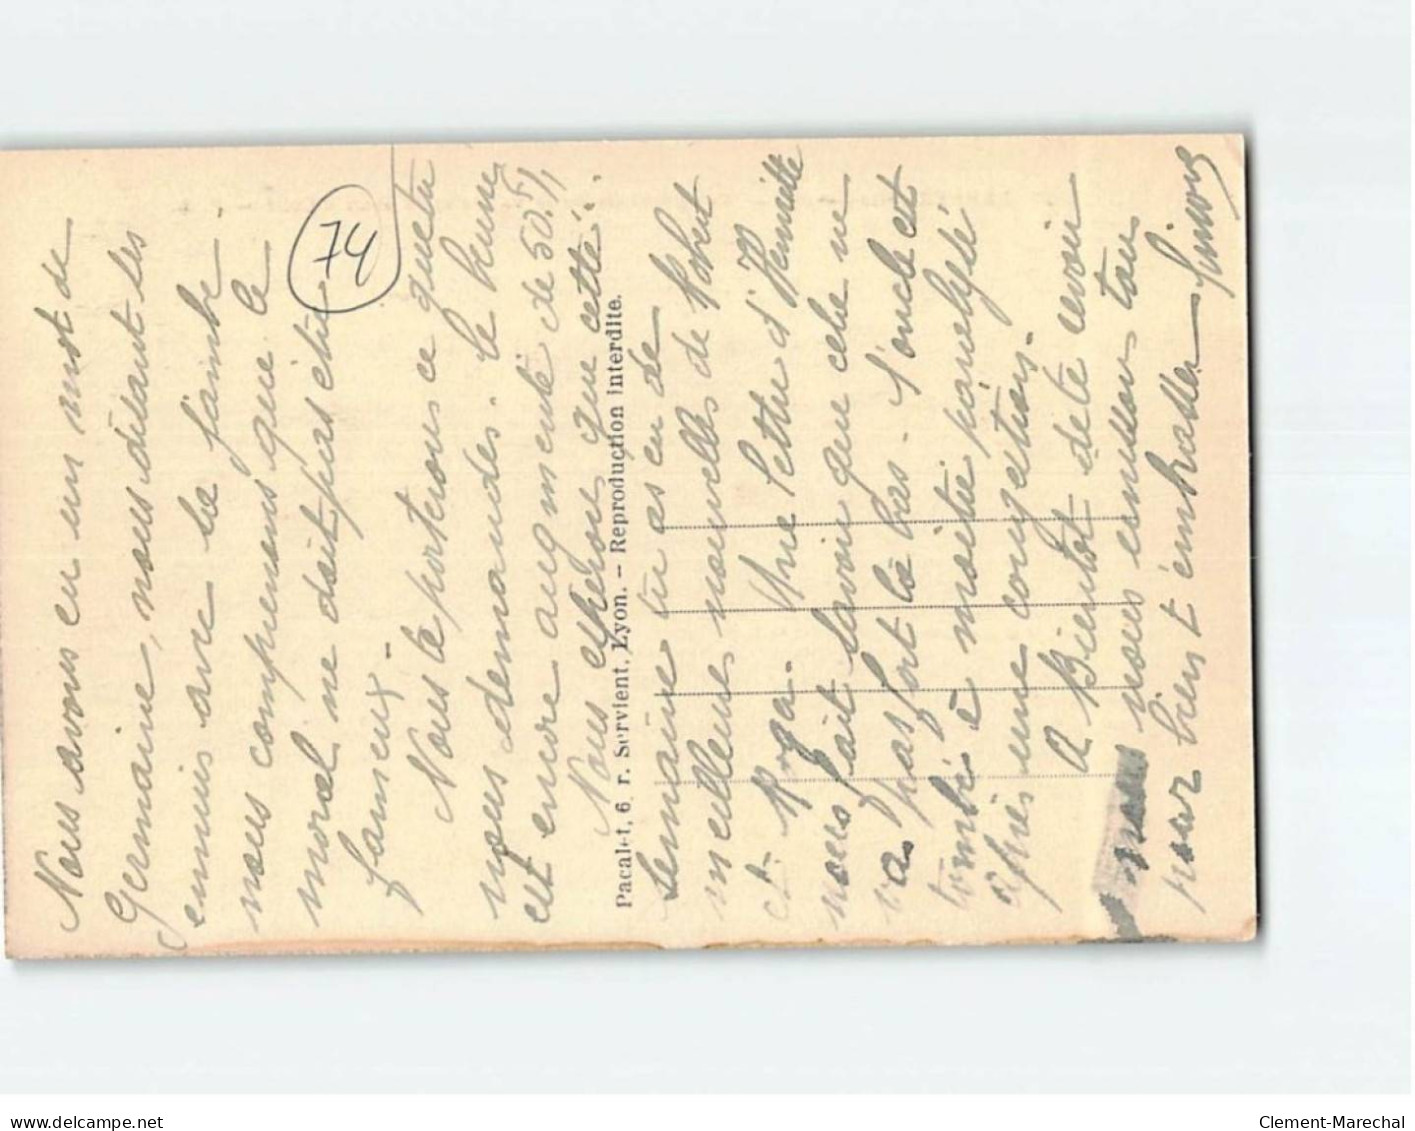 Nous avons eu un mot de
Germaine, nous détaillant les
ennuis avec sa jambe
nous comprenons que le
moral ne doit pas être
fameux -
Nous te porterons ce que tu
nous demandes. le beurre
est encore augmenté de 50.
Nous espérons que cette
semaine tu as eu de
meilleures nouvelles de Robert
et Une lettre d'Henriette
nous fait savoir que cela ne
va pas fort là bas - l'oncle est
tombé à moitié paralysé
après une congestion -
A Bientôt de te revoir
nous nous tous
pour bien t'embrasser
74
Pacalet, 6, r. Servient, Lyon. - Reproduction interdite.
www.delcampe.net
Clement-Marechal